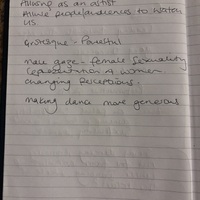 as an artist
Allow people/audiences to watch
us
Grotesque - Powerful
male gaze - female sexuality
representation of women
changing perceptions.
making dance more generous